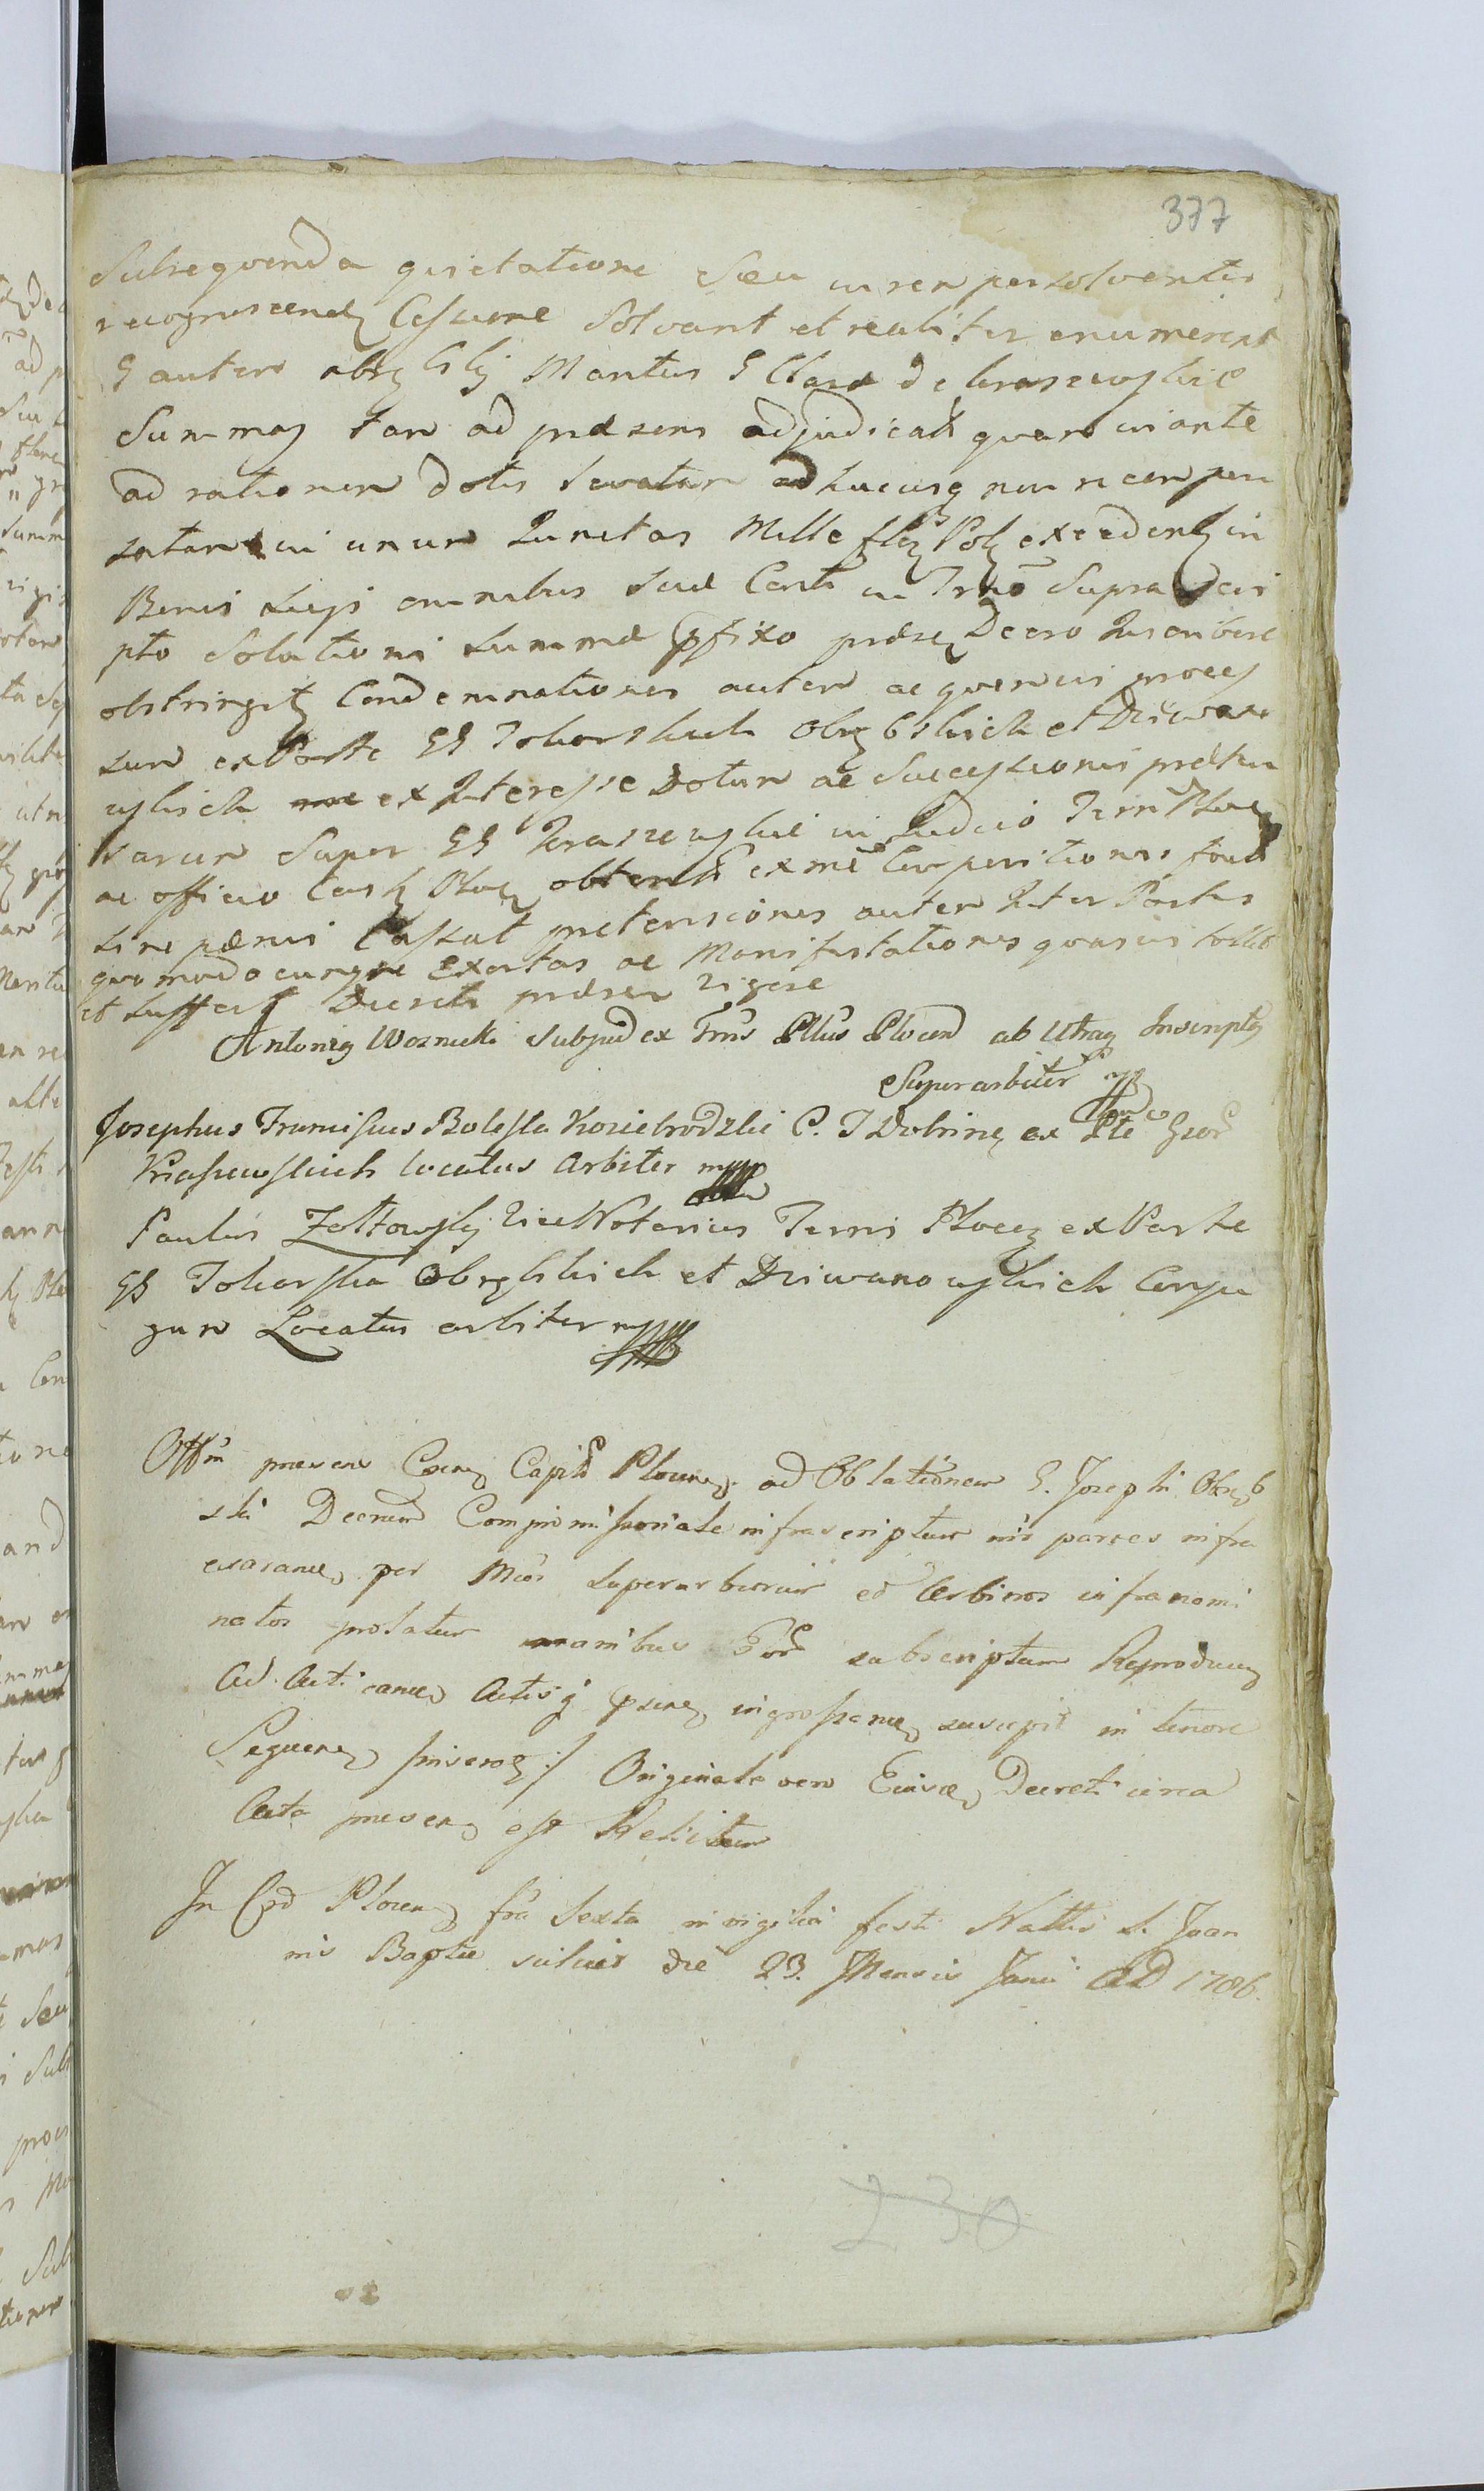 377
Subsequenda quietatione Seu in rem persolventis
recognoscendz Cessione Solvant et realiter enumerent
G autem obrębskij Maritus G Clara de kraszewskie
Summas tam ad præsens adjudicatas quam in ante
ad rationem dotis levatam adhucusq non recompen
satam in unum Junctas Mille flor Pol excedentz in
Bonis suis omnibus sub in Trno Supra scri
pto Solutioni summæ pfixo præsen Decro Inscribere
obstringitz Condemnationes autem ac quemvis proces
sum ex Parte GG Tokarskich Obrębskich et Dziwano
wskich ex Interesse Dotum ac Successionis præten
sarum Super GG kraszewskie in Judicio Terri Plocen
ac officio Castr Plocen obtent ex Compositionis
sine pænis Cassat pretensiones autem Inter Partes
quomodocunque Exortas ac Manifestationes quasvis tollit
et suffert Decreti præsen vigore
Antonig Woznicki Subjudex Trris Pltus Plocen ab Utraq Inscriptg
Superarbiter mp
Josephus Franciscus Bolesta Koziebrodzki C. T Dobrinen ex Pte Gsor
Kraszewskich locatus Arbiter mpp
Paulus Zołtowsky Vice Notarius Terris Plocen ex Parte
GG Tokarska Obrębskich et Dziwanowskich Conju
gum Locatus arbiter mpp
Offm presens Castren Capit Plocen ad Oblationem G. Josephi Obręb
ski Decretum Compromissoriale infrascriptum inter partes infra
exarand per Mcos Superarbitrum et Arbitros infra nomi
natos prolatum manibus Eor subscriptum Reproducen
Ad Acticand Actisq psen ingrossand suscepit in tenore
Sequen / Originale vero Eiusd Decreti circa
Acta presen est Relictum
In Crd Plocen fria Sexta in vigilia festi Nattis S. Joan
nis Baptæ scilicet die 23. Mensis Junii AD 1786.
230